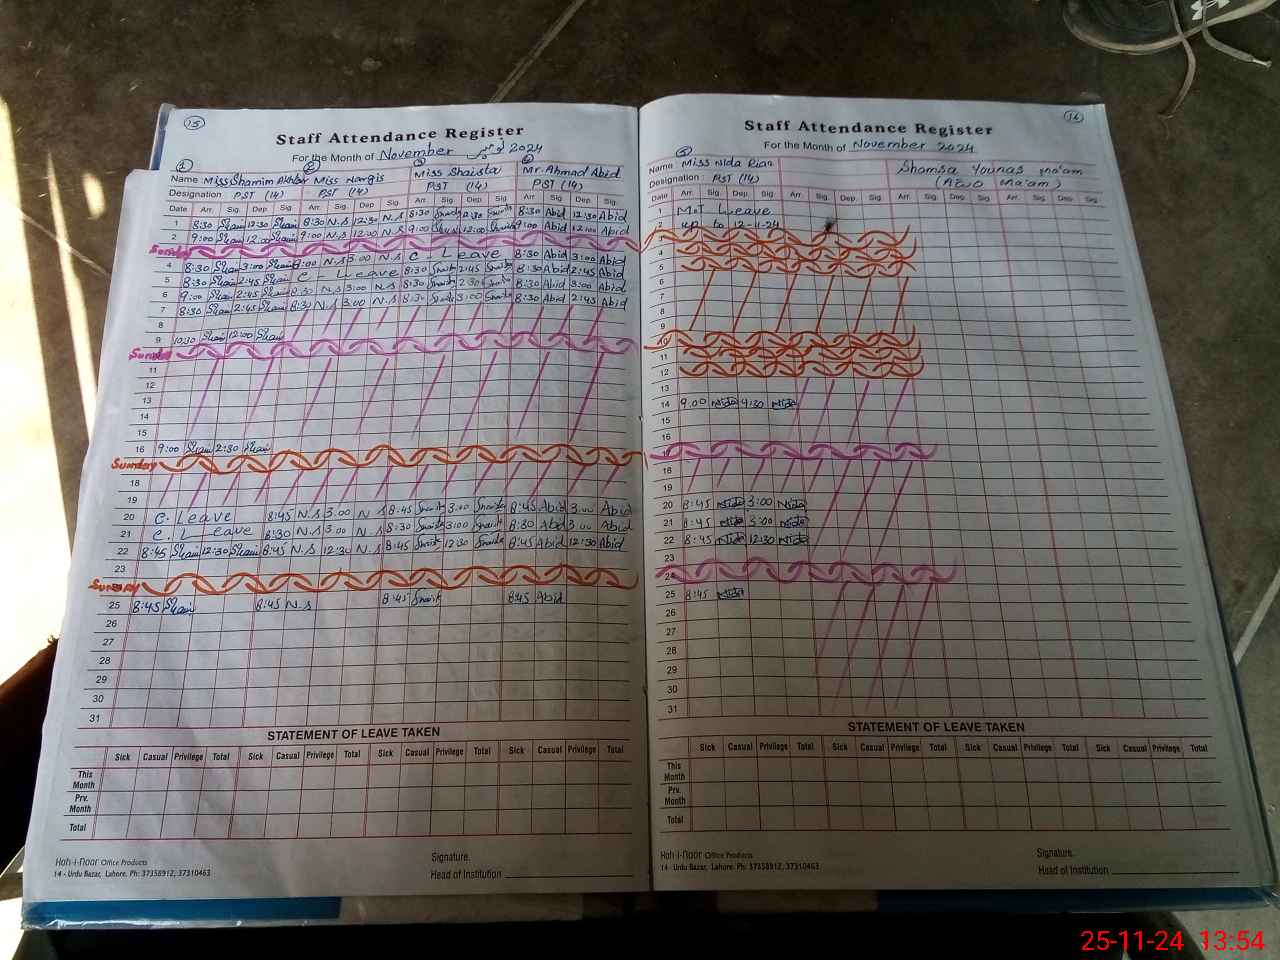 15
Staff Attendance Register
For the Month of November نومبر 2024
1 2 3 4
Name Miss Shamim Akhtar Miss Nargis Miss Shaista Mr. Ahmad Abid
Designation PST (14) PST (14) PST (14) PST (14)
Date Arr. Sig. Dep. Sig. Arr. Sig. Dep. Sig. Arr. Sig. Dep. Sig. Arr. Sig. Dep. Sig.
1 8:30 Sham 12:30 Sham 8:30 N.S 12:30 N.S 8:30 Shaista 12:30 Shaista 8:30 Abid 12:30 Abid
2 9:00 Sham 12:00 Sham 9:00 N.S 12:00 N.S 9:00 Shaista 12:00 Shaista 9:00 Abid 12:00 Abid
Sunday
4 8:30 Sham 3:00 Sham 8:00 N.S 3.00 N.S C - Leave 8:30 Abid 3:00 Abid
5 8:30 Sham 2:45 Sham C - Leave 8:30 Shaista 2:45 Shaista 8:30 Abid 2:45 Abid
6 9:00 Sham 2:45 Sham 8:30 N.S 3:00 N.S 8:30 Shaista 2:30 Shaista 8:30 Abid 3:00 Abid
7 8:30 Sham 2:45 Sham 8:30 N.S 3.00 N.S 8:30 Shaista 3:00 Shaista 8:30 Abid 2:45 Abid
8
9 10:30 Sham 12:00 Sham
Sunday
11
12
13
14
15
16 9:00 Sham 2:30 Sham
Sunday
18
19
20 C. Leave 8:45 N.S 3.00 N S 8:45 Shaista 3:00 Shaista 8:45 Abid 3.00 Abid
21 C. Leave 8:30 N.S 3.00 N S 8:30 Shaista 3:00 Shaista 8:30 Abid 3.00 Abid
22 8:45 Sham 12:30 Sham 8:45 N.S 12:30 N.S 8:45 Shaista 12:30 Shaista 8:45 Abid 12:30 Abid
23
SUNDAY
25 8:45 Sham 8:45 N.S 8:45 Shaista 8:45 Abid
26
27
28
29
30
31
STATEMENT OF LEAVE TAKEN
Sick Casual Privilege Total Sick Casual Privilege Total Sick Casual Privilege Total Sick Casual Privilege Total
This Month
Prv. Month
Total
Koh-i-noor Office Products
14 - Urdu Bazar, Lahore. Ph: 37358912, 37310463
Signature.
Head of Institution
16
Staff Attendance Register
For the Month of November 2024
5
Name Miss Nida Riaz Shamsa Younas ma'am
Designation: PST (14) (AEO Ma'am)
Date Arr. Sig. Dep. Sig. Arr. Sig. Dep. Sig. Arr. Sig. Dep. Sig. Arr. Sig. Dep. Sig.
1 M.T Leave
2 up to 12-11-24
3
4
5
6
7
8
9
10
11
12
13
14 9.00 Nida 4:30 Nida
15
16
17
18
19
20 8:45 Nida 3:00 Nida
21 8:45 Nida 3:00 Nida
22 8:45 Nida 12:30 Nida
23
24
25 8:45 Nida
26
27
28
29
30
31
STATEMENT OF LEAVE TAKEN
Sick Casual Privilege Total Sick Casual Privilege Total Sick Casual Privilege Total Sick Casual Privilege Total
This Month
Prv. Month
Total
Koh-i-noor Office Products
14 - Urdu Bazar, Lahore. Ph: 37358912, 37310463
Signature.
Head of Institution
25-11-24 13:54